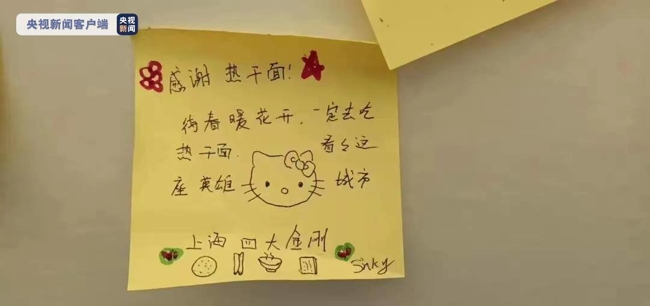 央视新闻客户端
央视
新闻
感谢 热干面!
待春暖花开,一定去吃
热干面. 看看这
座英雄 城市
上海 四大金刚